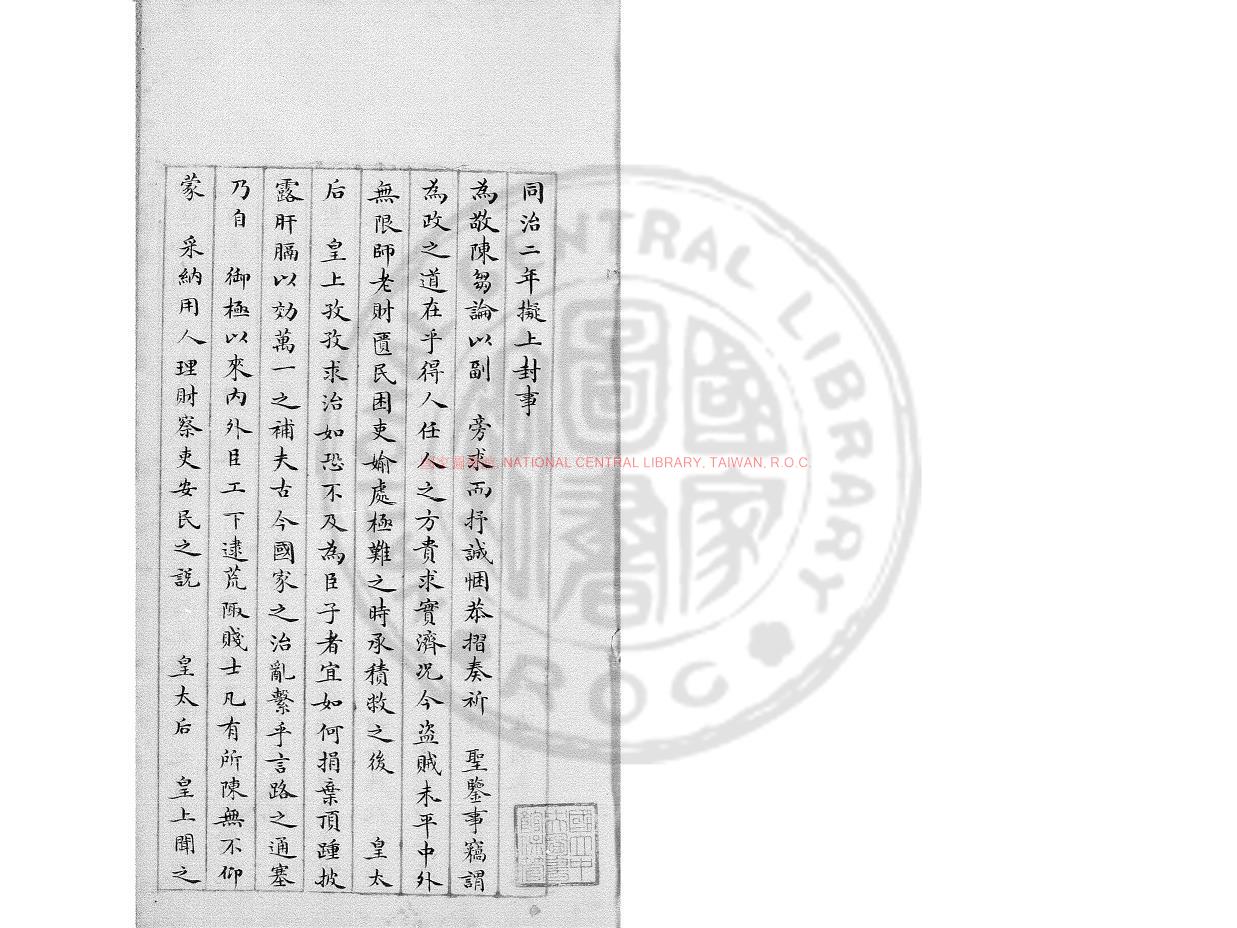 同治二年擬上封事
為敬陳芻論以副 旁求而抒誠悃恭摺奏祈 聖鑒事竊謂
為政之道在乎得人任人之方貴求實濟況今盜賊未平中外
無限師老財匱民困吏媮處極難之時承積救之後 皇太
后 皇上孜孜求治如恐不及為臣子者宜如何捐棄頂踵披
露肝膈以効萬一之補夫古今國家之治亂繫乎言路之通塞
乃自 御極以來內外臣工下逮荒陬賤士凡有所陳無不仰
蒙 采納用人理財察吏安民之說 皇太后 皇上聞之
國立中央圖書館保管
國家圖書館 NATIONAL CENTRAL LIBRARY, TAIWAN, R.O.C.
CENTRAL LIBRARY
R.O.C
國家圖書